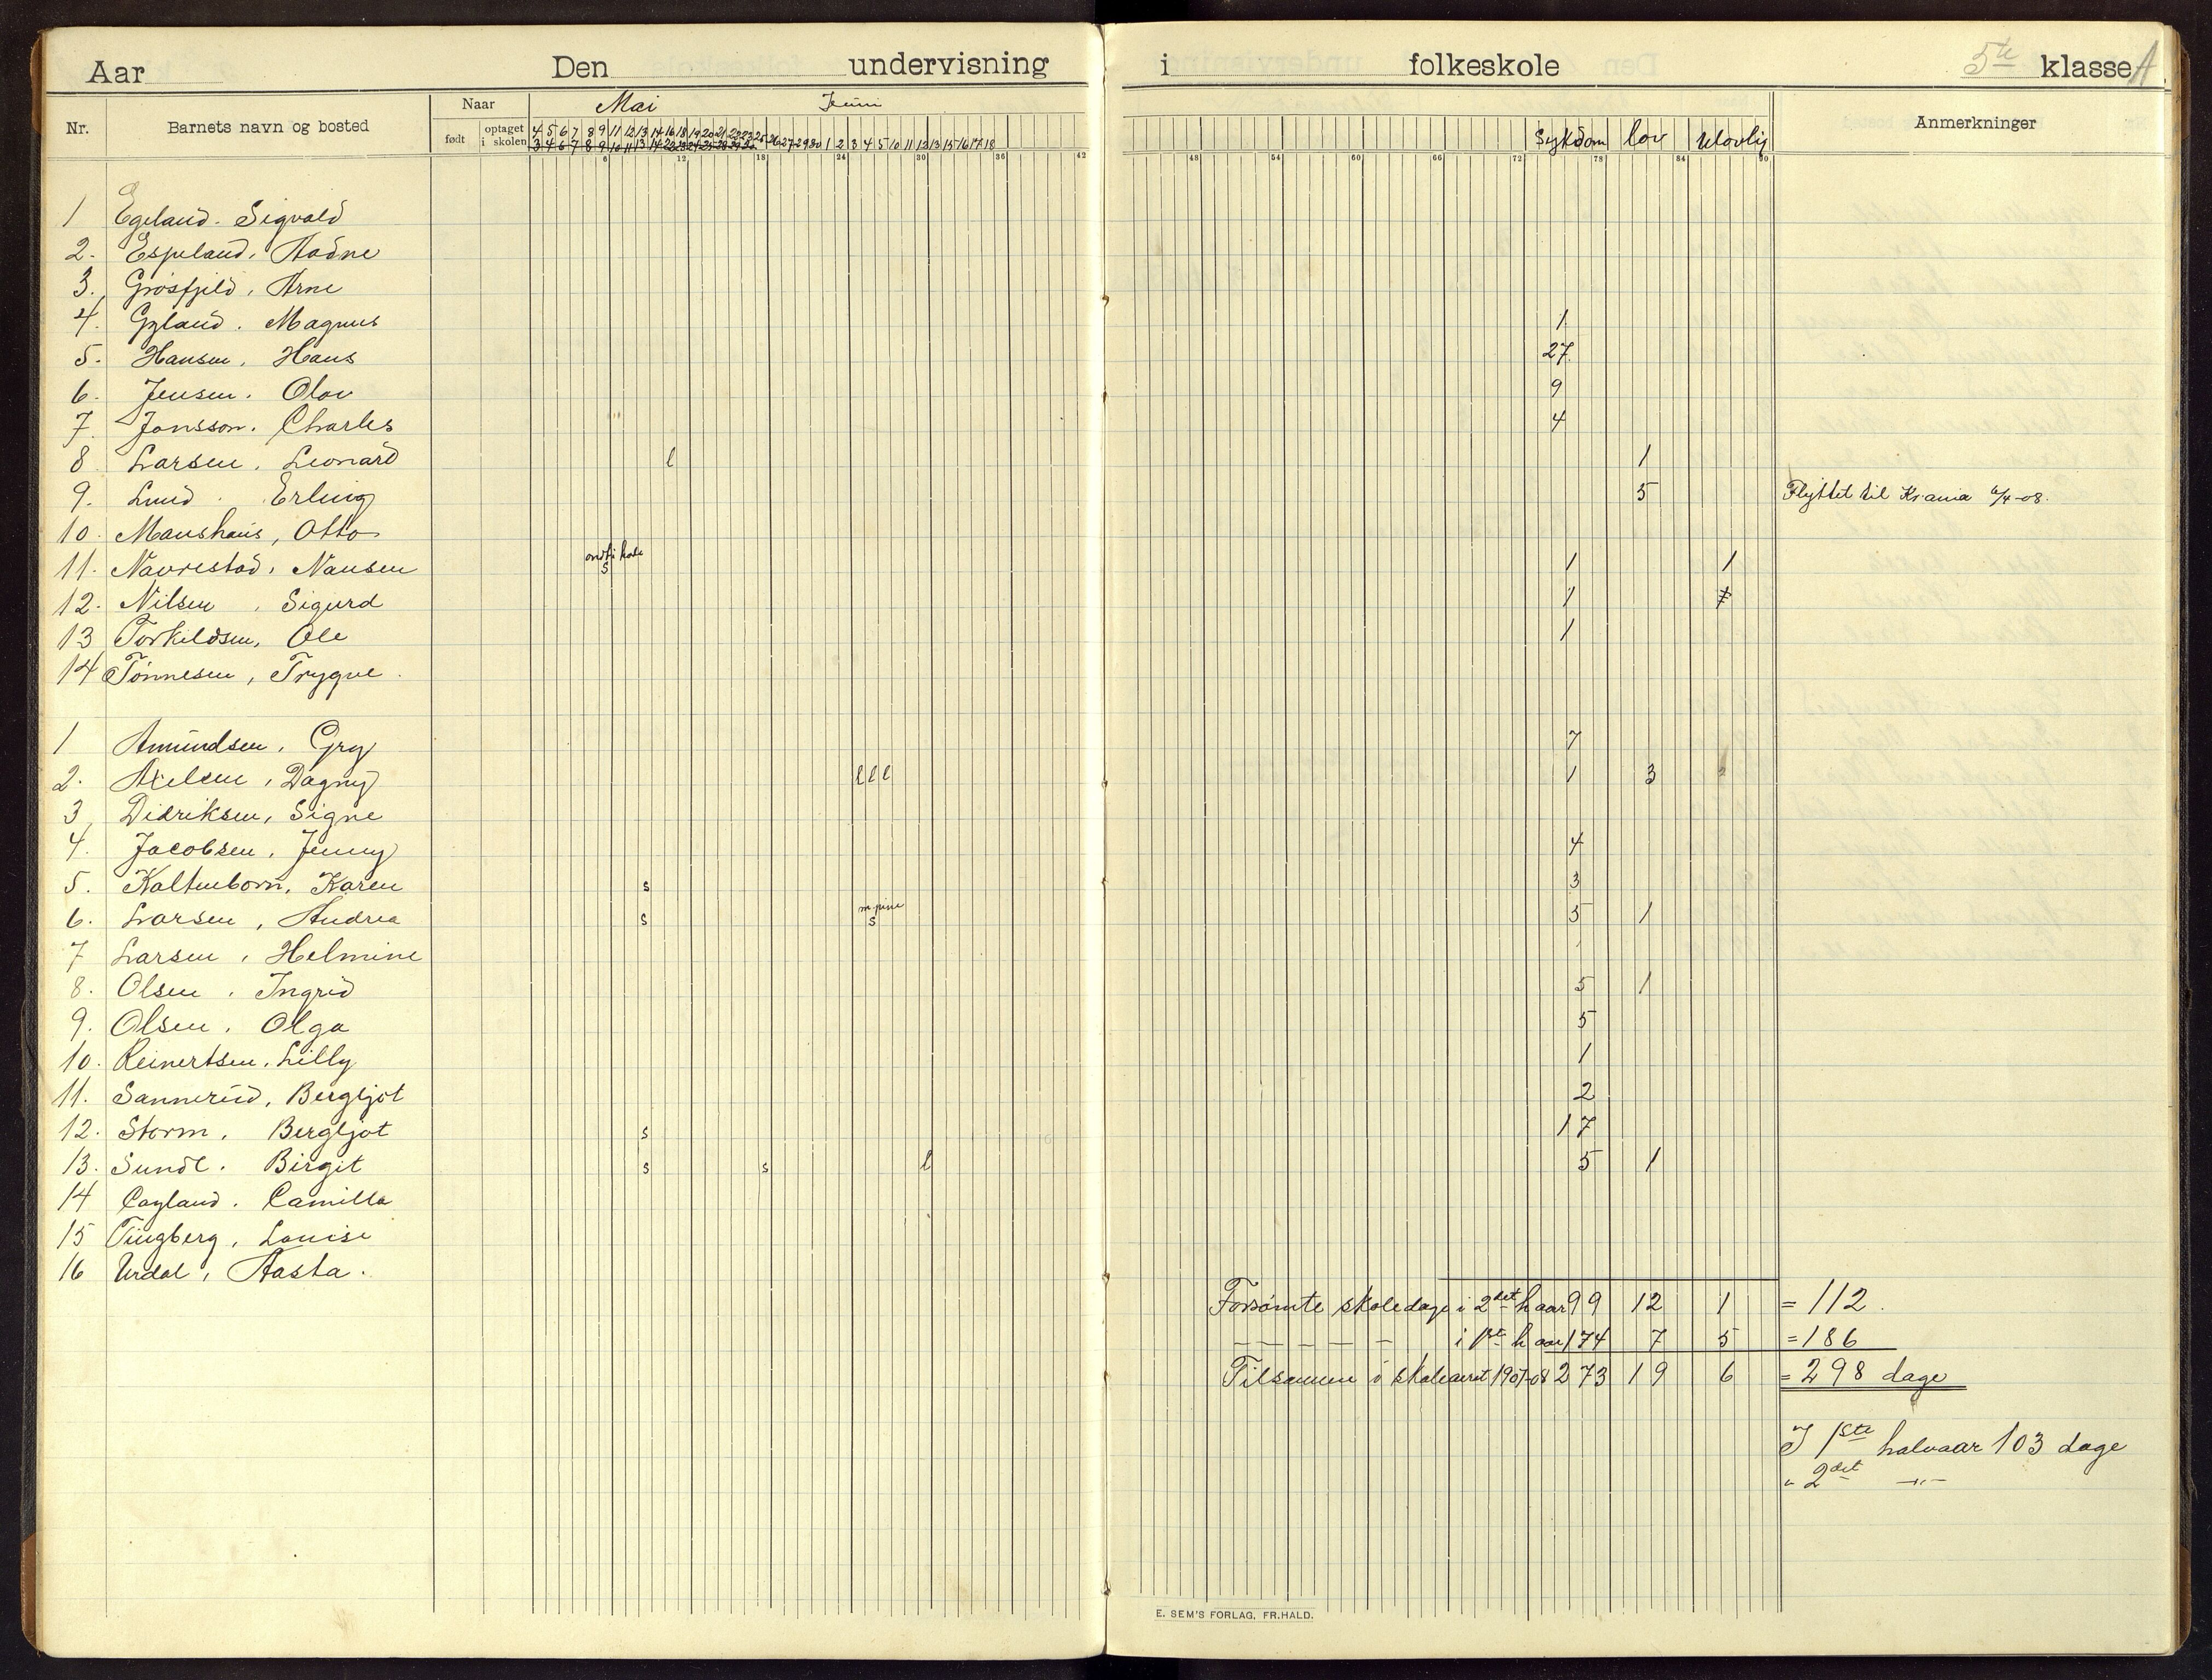 Aar Den undervisning i folkeskole 5te klasse A
Nr. Barnets navn og bosted Naar født optaget i skolen Mai Juni Sykdom lov Ulovlig Anmerkninger
6 12 18 24 30 36 42 48 54 60 66 72 78 84 90
1 Egeland. Sigvald
2. Espeland, Aadne
3. Grøsfjeld, Arne
4. Gyland. Magnus 1
5. Hansen, Hans 27
6. Jensen. Olav 9
7. Jonsson. Charles 4
8 Larsen, Leonard l 1
9. Lund. Erling 5 Flyttet til Kr.ania 6/4-08.
10. Maushaus, Otto
11. Navrestad, Nansen s 1 1
12. Nilsen, Sigurd 1
13 Torkildsen, Ole 1
14 Tønnesen, Trygve
1 Amundsen, Gry 7
2. Axelsen, Dagny l l l 1 3
3 Didriksen, Signe
4. Jacobsen, Jenny 4
5. Kaltenborn, Karen s 3
6. Larsen, Andrea s s 5 1
7 Larsen, Helmine
8. Olsen, Ingrid 5 1
9. Olsen, Olga 5
10. Reinertsen, Lilly 1
11. Sannerud, Bergljot 2
12. Storm, Bergljot s 17
13. Sunde. Birgit s s l 5 1
14 Camilla
15 Tingberg, Louise
16 Urdal, Aasta.
Forsømte skoledage i 2det h.aar 99 12 1 = 112.
— — — — — i 1ste h.aar 174 7 5 = 186
Tilsammen i skoleaaret 1907-08 273 19 6 = 298 dage
I 1ste halvaar 103 dage
" 2det —"—
E. SEM'S FORLAG, FR.HALD.